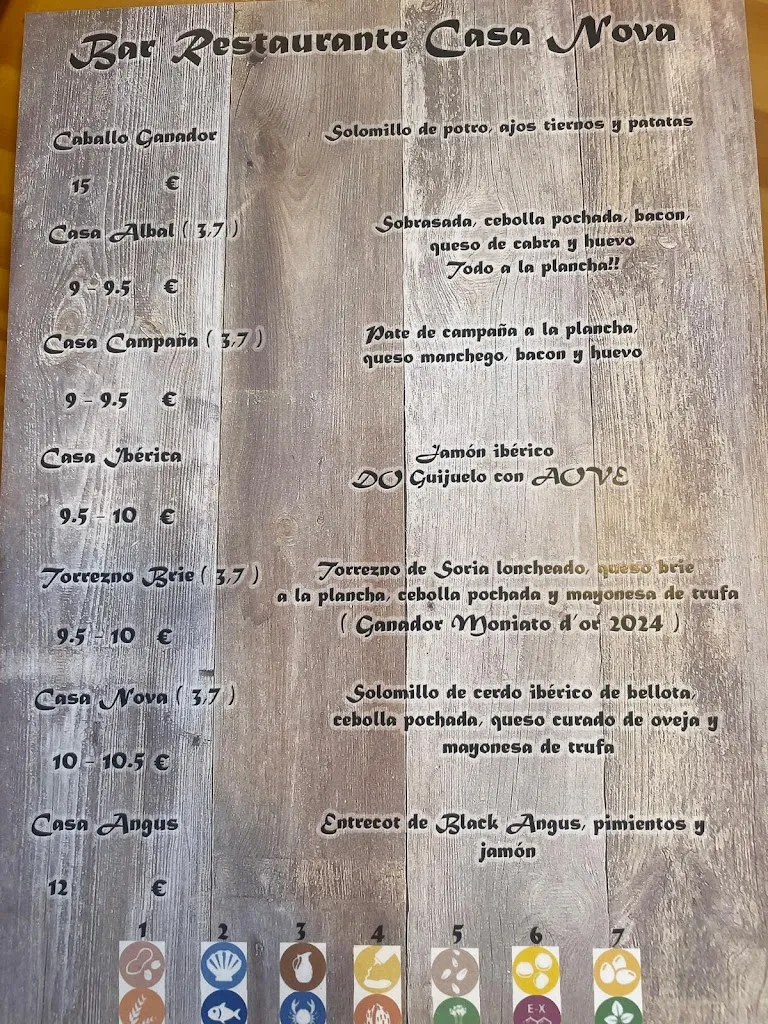 Bar Restaurante Casa Nova
Caballo Ganador
Solomillo de potro, ajos tiernos y patatas
15 €
Casa Albal ( 3,7 )
Sobrasada, cebolla pochada, bacon,
queso de cabra y huevo
Todo a la plancha!!
9 - 9.5 €
Casa Campaña ( 3,7 )
Pate de campaña a la plancha,
queso manchego, bacon y huevo
9 - 9.5 €
Casa Ibérica
Jamón ibérico
DO Guijuelo con AOVE
9.5 - 10 €
Torrezno Brie ( 3,7 )
Torrezno de Soria loncheado, queso brie
a la plancha, cebolla pochada y mayonesa de trufa
( Ganador Moniato d'or 2024 )
9.5 - 10 €
Casa Nova ( 3,7 )
Solomillo de cerdo ibérico de bellota,
cebolla pochada, queso curado de oveja y
mayonesa de trufa
10 - 10.5 €
Casa Angus
Entrecot de Black Angus, pimientos y
jamón
12 €
1 2 3 4 5 6 7
E-X